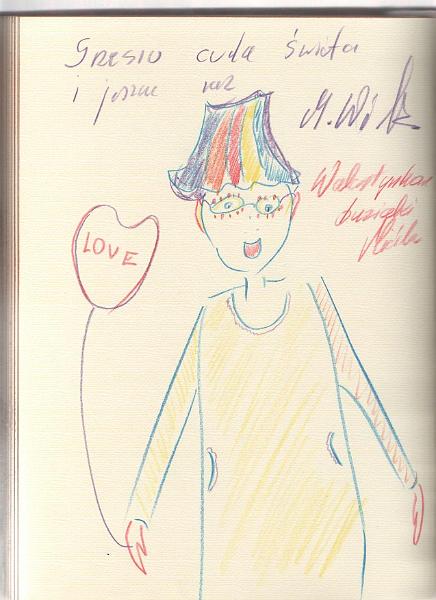 Gresio cuda świata
i jeszcze raz
M. Wilk
Walentynkowe
buziaki
LOVE